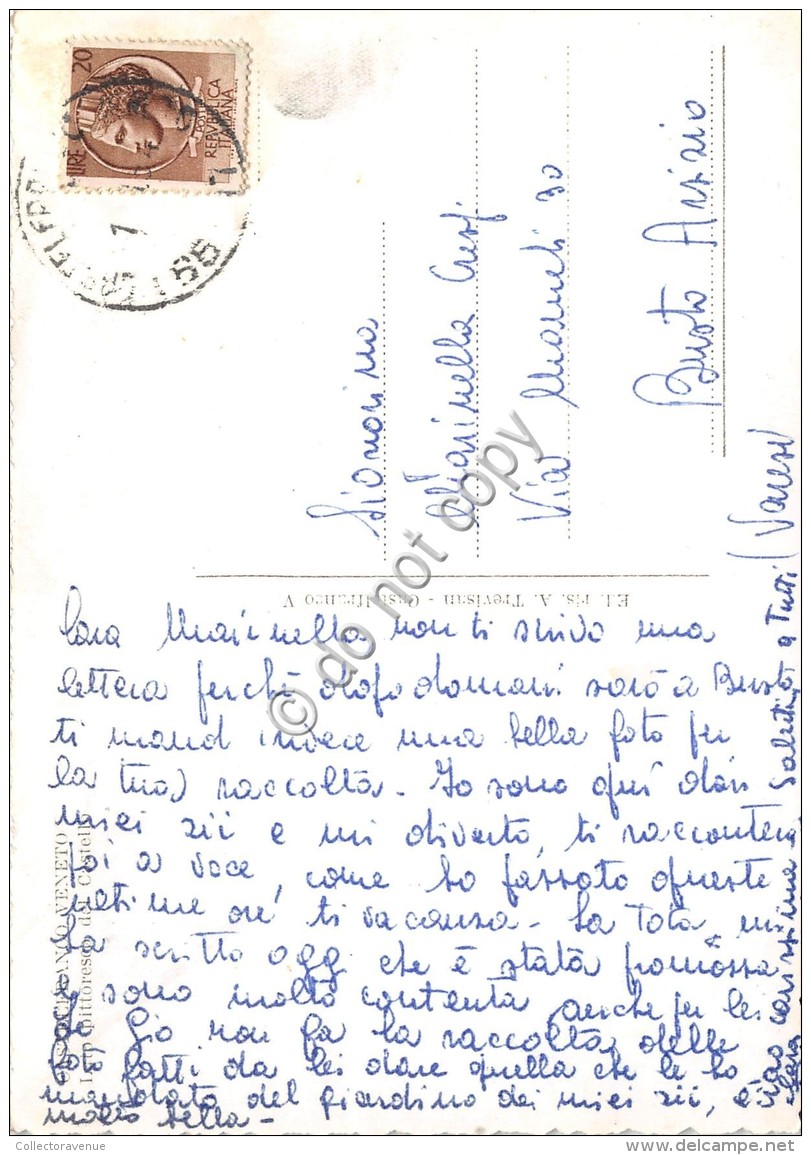 LIRE 20
POSTE
REPVBBLICA
ITALIANA
55
Signorina
Marinella Crespi
Via Mameli 30
Busto Arsizio
(Varese)
Ed. Ris. A. Trevisan - Castelfranco V
CASTELFRANCO VENETO
Lato pittoresco del Castello
Cara Marinella non ti scrivo una
lettera perchè dopodomani sarò a Busto,
ti mando invece una bella foto per
la tua raccolta - Io sono quì dai
miei zii e mi diverto, ti racconterò
poi a voce, come ho passato queste
ultime ore di vacanza - La Tota mi
ha scritto oggi che è stata promossa
e sono molto contenta anche per lei
Se Giò non fa la raccolta delle
foto fatti da lei dare quella che le ho
mandato del giardino dei miei zii, è
molto bella -
Ciao carissima
Saluti a Tutti
© do not copy
Collectoravenue
delcampe.net